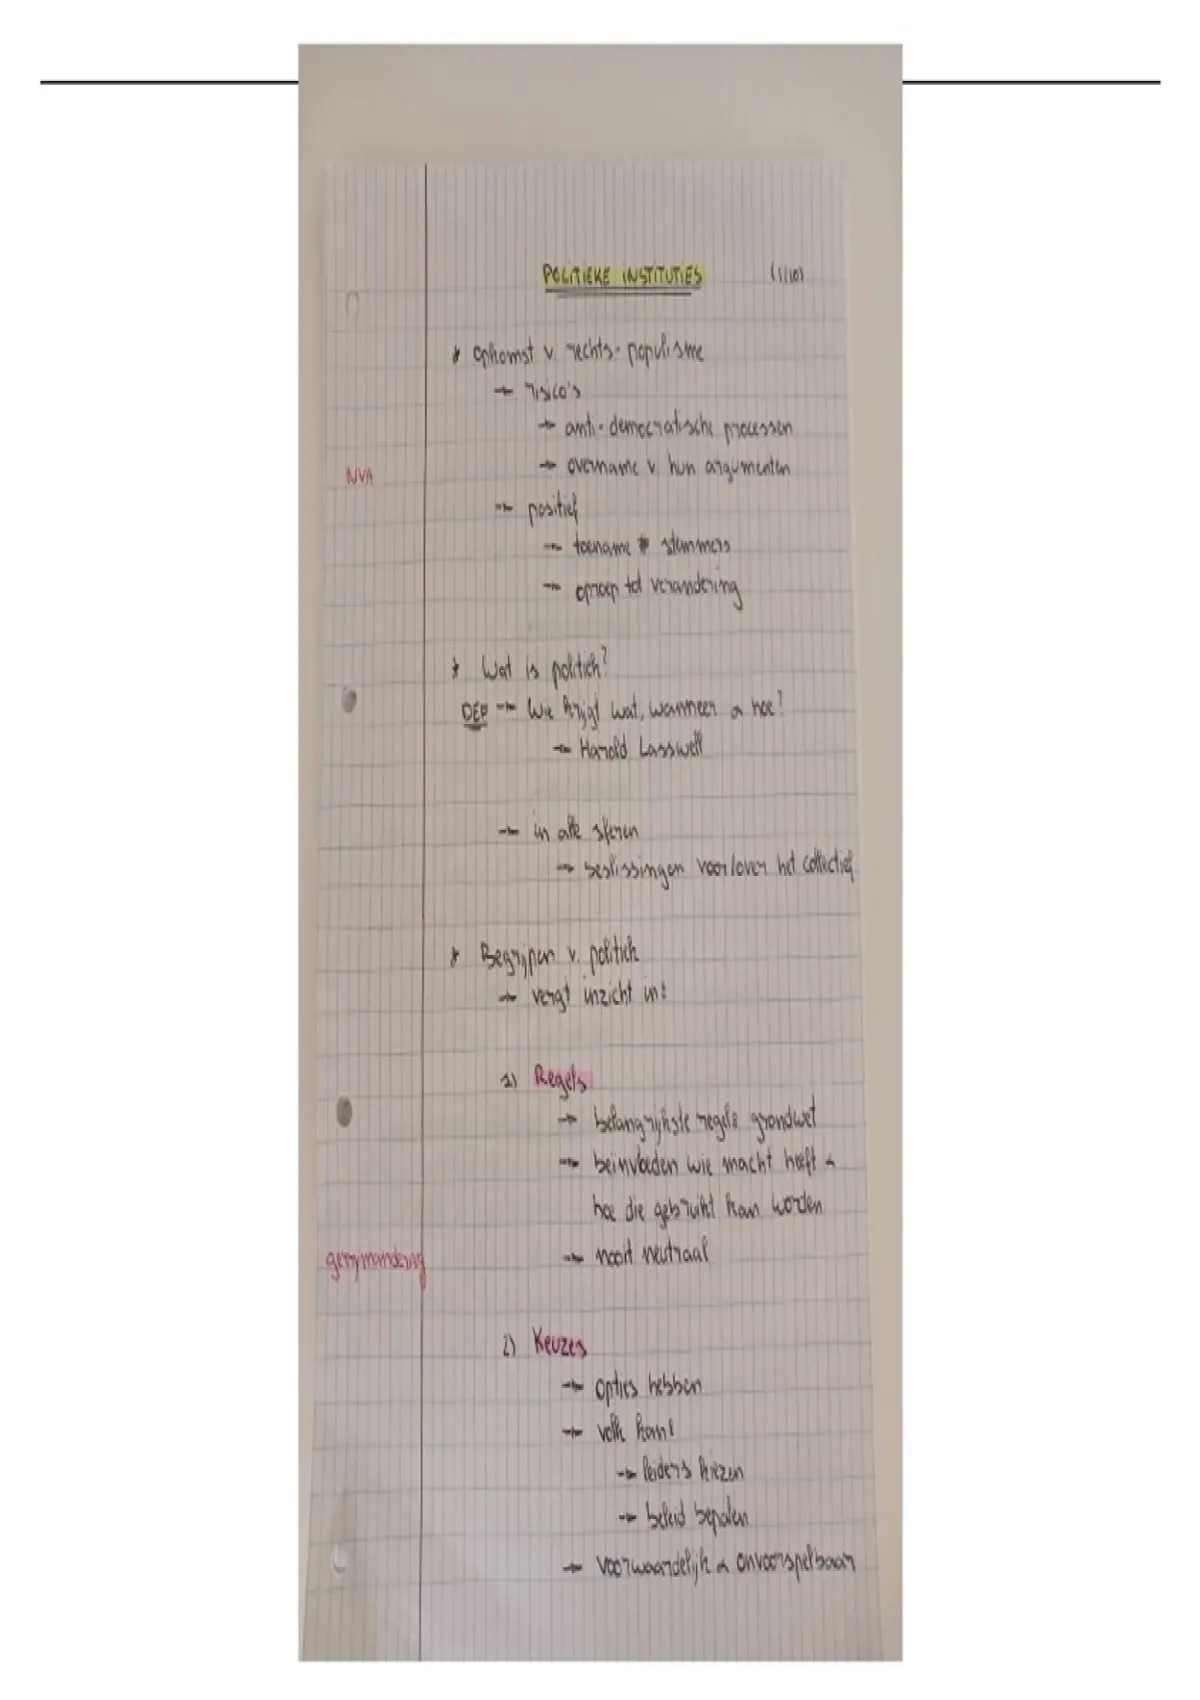 POLITIEKE INSTITUTIES (1/10)
* Opkomst v. rechts-populisme
→ risico's
→ anti-democratische processen
NVA → overname v. hun argumenten
→ positief
→ toename # stemmers
→ oproep tot verandering
* Wat is politiek?
DEF → Wie krijgt wat, wanneer & hoe?
→ Harold Lasswell
→ in alle sferen
→ beslissingen voor/over het collectief
* Begrijpen v. politiek
→ vergt inzicht in:
1) Regels
→ belangrijkste regels grondwet
→ beinvloeden wie macht heeft &
hoe die gebruikt kan worden
gerrymandering → nooit neutraal
2) Keuzes
→ opties hebben
→ volk kan:
→ leiders kiezen
→ beleid bepalen
→ voorwaardelijk & onvoorspelbaar